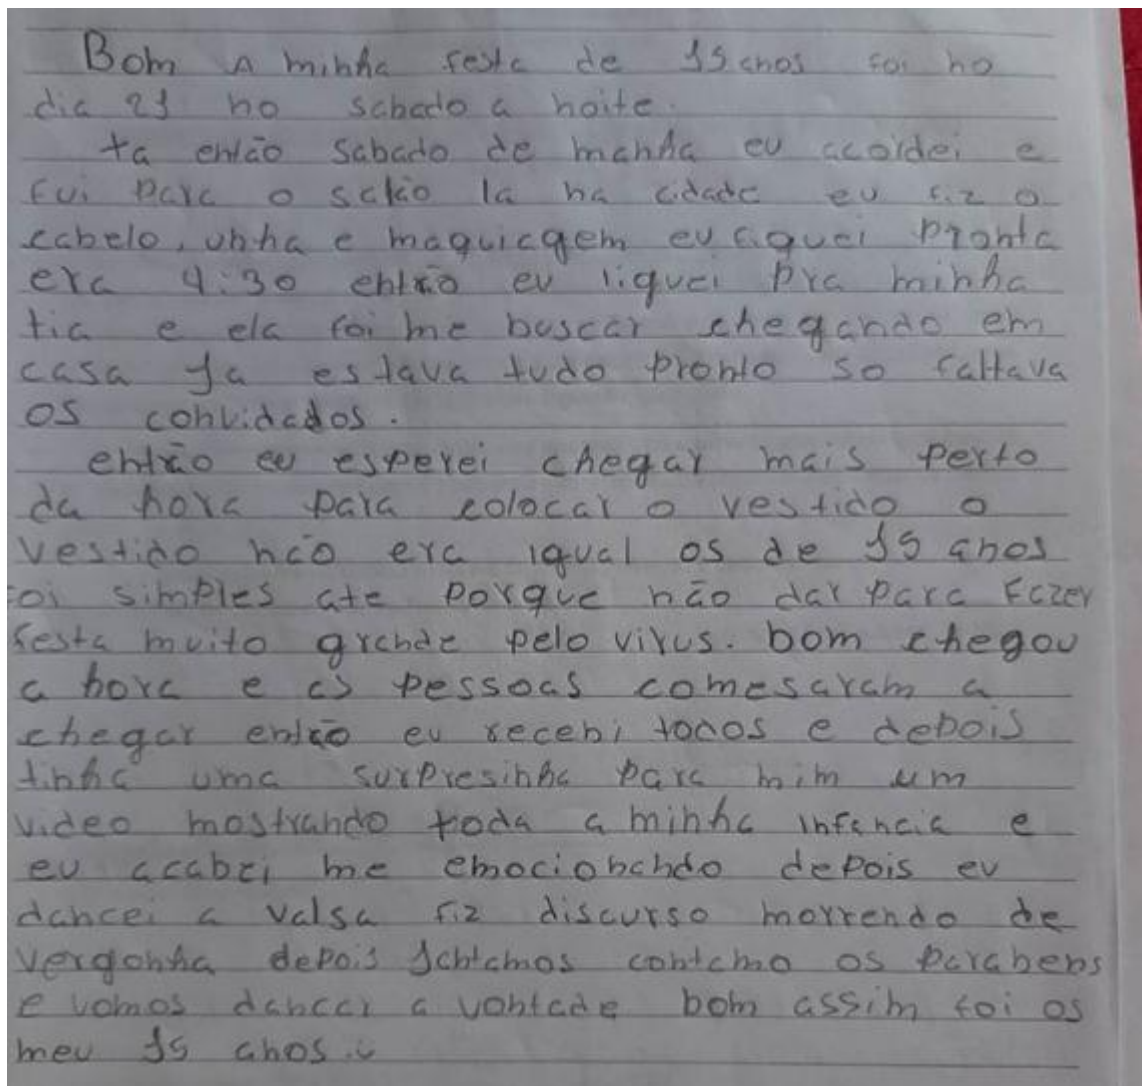 Bom A minha festa de 15 anos foi no
dia 21 no sabado a noite.
ta então sabado de manha eu acordei e
fui para o salão la na cidade eu fiz o
cabelo, unha e maquiagem eu fiquei pronta
era 4:30 então eu liguei pra minha
tia e ela foi me buscar chegando em
casa Ja estava tudo pronto so faltava
os convidados.
então eu esperei chegar mais perto
da hora para colocar o vestido o
vestido não era igual os de 15 anos
foi simples ate porque não dar para Fazer
festa muito grande pelo virus. bom chegou
a hora e as pessoas comesaram a
chegar então eu recebi todos e depois
tinha uma surpresinha para mim um
video mostrando toda a minha infancia e
eu acabei me emocionando depois eu
dancei a valsa fiz discurso morrendo de
vergonha depois Jantamos cantamo os parabens
e vomos dancar a vontade bom assim foi os
meu 15 anos.